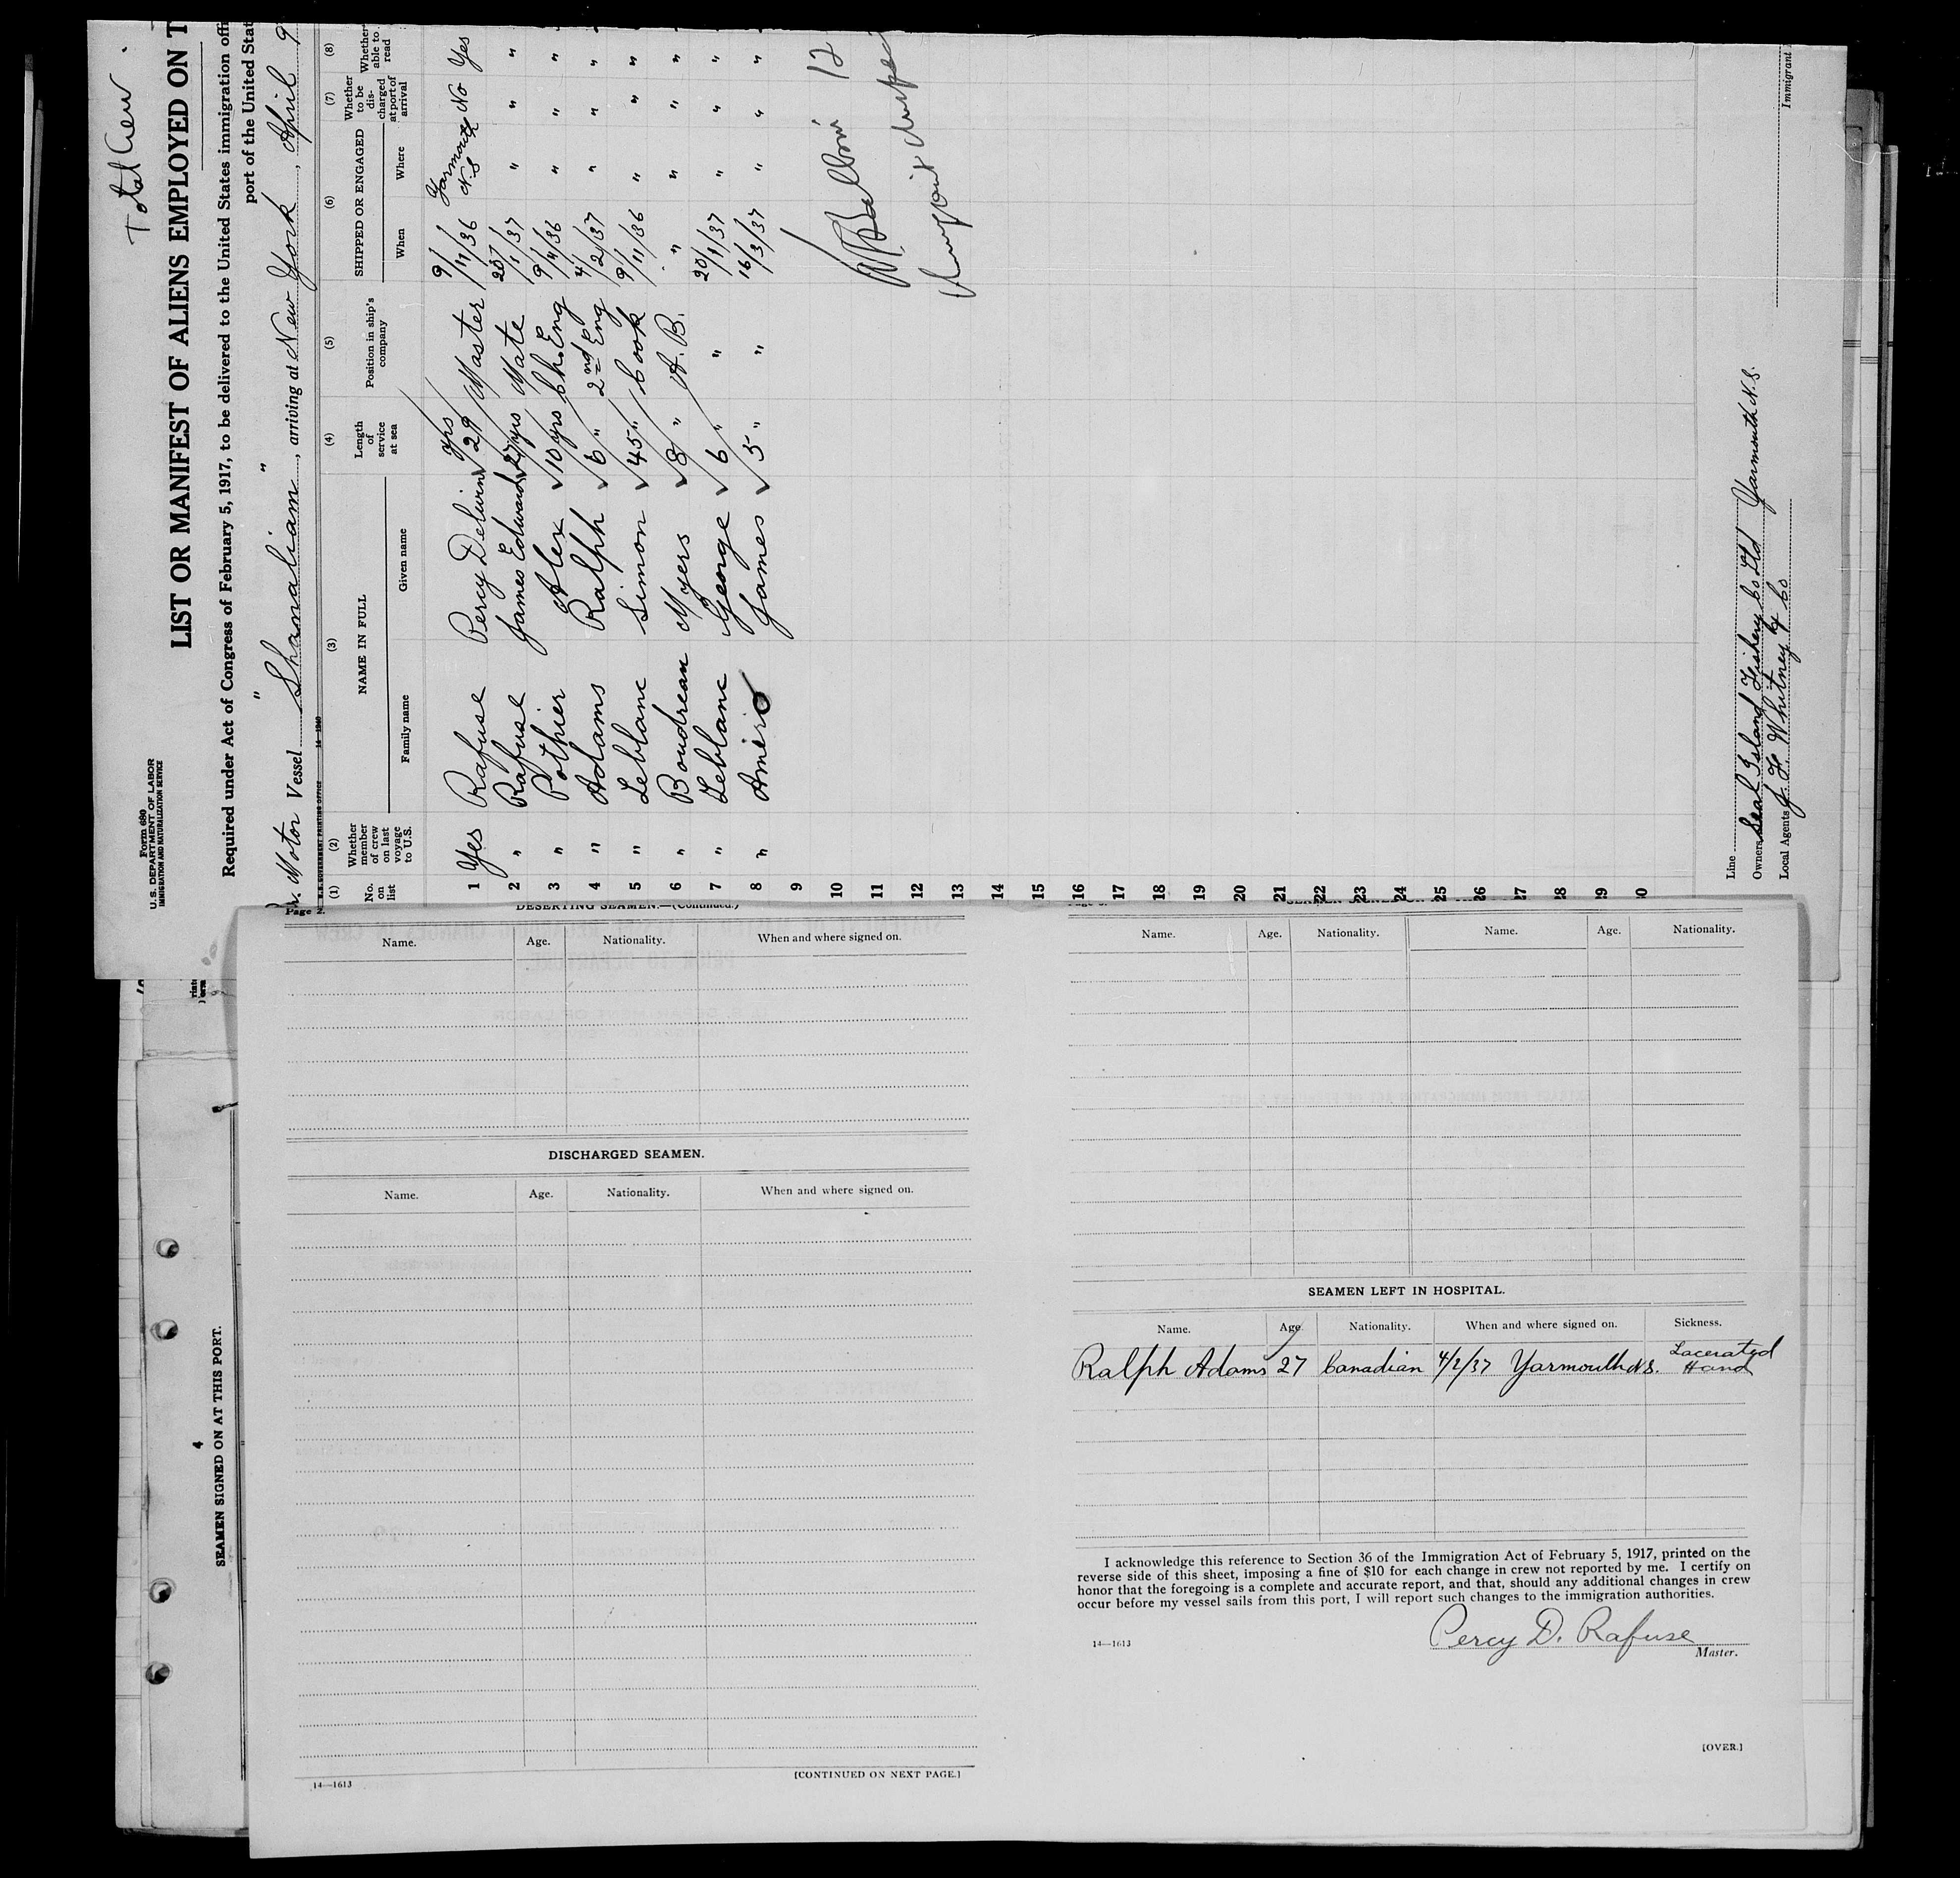 Total Crew
Form 680
U. S. DEPARTMENT OF LABOR
IMMIGRATION AND NATURALIZATION SERVICE
LIST OR MANIFEST OF ALIENS EMPLOYED ON T
Required under Act of Congress of February 5, 1917, to be delivered to the United States immigration offi
port of the United Stat
Motor Vessel " Shamalian " , arriving at New York , April 9
(1) (2) (3) (4) (5) (6) (7) (8)
No. on list
Whether member of crew on last voyage to U.S.
NAME IN FULL
Family name Given name
Length of service at sea
Position in ship's company
SHIPPED OR ENGAGED
When Where
Whether to be discharged at port of arrival
Whether able to read
1 Yes Rafuse Percy Delwin 29 yrs Master 9/11/36 Yarmouth N.S No Yes
2 " Rafuse James Edward 27 yrs Mate 20/1/37 " " "
3 " Pothier Alex 10 yrs Ch. Eng 9/11/36 " " "
4 " Adams Ralph 6 " 2nd Eng 4/2/37 " " "
5 " Leblanc Simon 45 " Cook 9/11/36 " " "
6 " Boudreau Myers 8 " A. B. " " " "
7 " Leblanc George 6 " " 20/1/37 " " "
8 " Amiro James 5 " " 16/3/37 " " "
9
10
11
12
13
14
15
16
17
18
19
20
21
22
23
24
25
26
27
28
29
30
12
Line
Owners Seal Island Fishery Co Ltd Yarmouth N.S.
Local Agents J. F. Whitney & Co
Immigrant
Page 2.
DESERTING SEAMEN.—(Continued.)
Name. Age. Nationality. When and where signed on.
DISCHARGED SEAMEN.
Name. Age. Nationality. When and where signed on.
14—1613
[CONTINUED ON NEXT PAGE.]
Name. Age. Nationality. Name. Age. Nationality.
SEAMEN LEFT IN HOSPITAL.
Name. Age. Nationality. When and where signed on. Sickness.
Ralph Adams 27 Canadian 4/2/37 Yarmouth N.S. Lacerated Hand
I acknowledge this reference to Section 36 of the Immigration Act of February 5, 1917, printed on the
reverse side of this sheet, imposing a fine of $10 for each change in crew not reported by me. I certify on
honor that the foregoing is a complete and accurate report, and that, should any additional changes in crew
occur before my vessel sails from this port, I will report such changes to the immigration authorities.
Percy D. Rafuse
14—1613
Master.
[OVER.]
4
SEAMEN SIGNED ON AT THIS PORT.